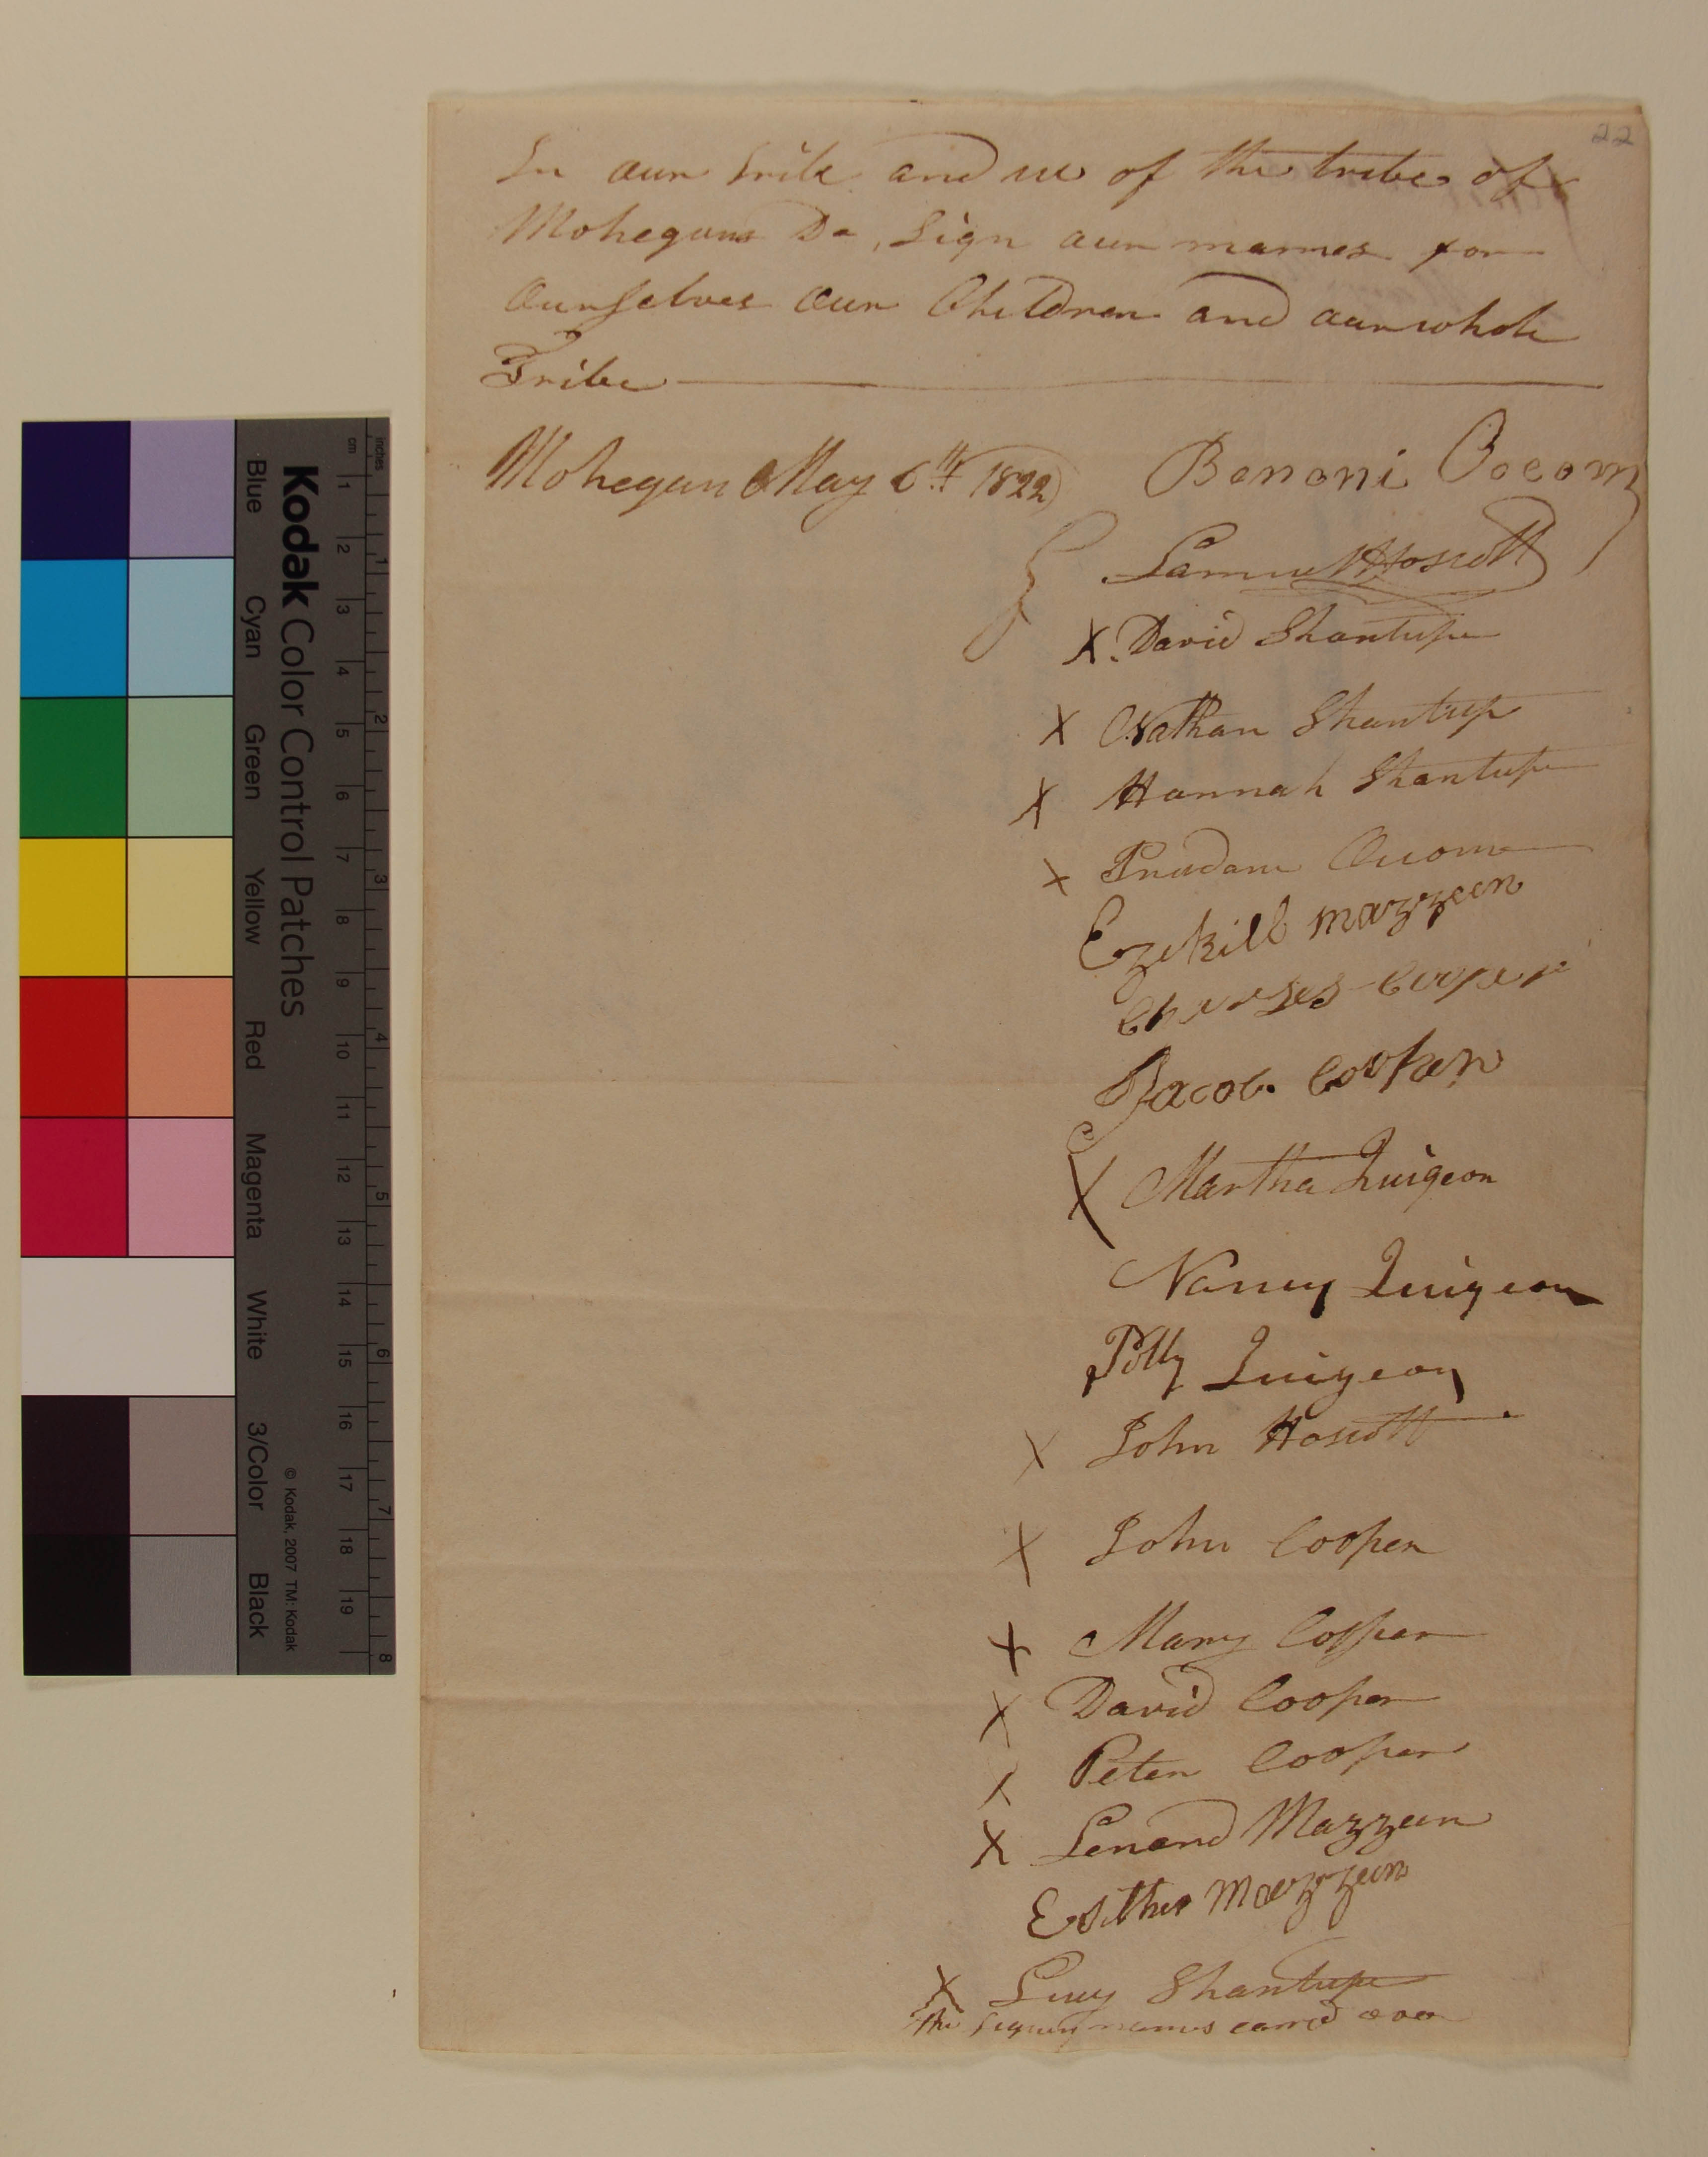 22
In our Tribe and we of the tribe of
Mohegans Do, Sign our names for
Ourselves Our Children and our whole
Tribe
Mohegan May 6th 1822
Benoni Occom
Samuel Hoscott
X. David Shantupe
X Nathan Shantup
X Hannah Shantup
X Prudance Occom
Ezekill mazzeen
Charles Cooper
Jacob. Cooper
X Martha Quigeon
Nancy Quigeon
Polly Quigeon
X John Hoscott
X John Cooper
X Mary Cooper
X David Cooper
X Peter Cooper
X Lenard Mazzeen
Esther Mazzeen
X Lucy Shantupe
the names carred over
Kodak Color Control Patches
© Kodak, 2007 TM: Kodak
Blue Cyan Green Yellow Red Magenta White 3/Color Black
cm 1 2 3 4 5 6 7 8 9 10 11 12 13 14 15 16 17 18 19
inches 1 2 3 4 5 6 7 8